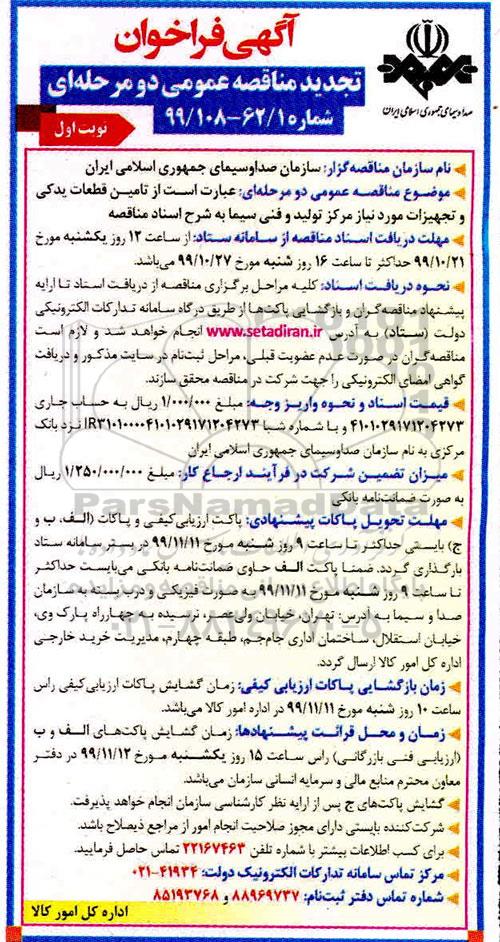 آگهی فراخوان
تجدید مناقصه عمومی دو مرحله‌ای
شماره ۶۲/۱-۹۹/۱۰۸
نوبت اول
صدا و سیمای جمهوری اسلامی ایران
نام سازمان مناقصه‌گزار: سازمان صداوسیمای جمهوری اسلامی ایران
موضوع مناقصه عمومی دو مرحله‌ای: عبارت است از تامین قطعات یدکی
و تجهیزات مورد نیاز مرکز تولید و فنی سیما به شرح اسناد مناقصه
مهلت دریافت اسناد مناقصه از سامانه ستاد: از ساعت ۱۲ روز یکشنبه مورخ
۹۹/۱۰/۲۱ حداکثر تا ساعت ۱۶ روز شنبه مورخ ۹۹/۱۰/۲۷ می‌باشد.
نحوه دریافت اسناد: کلیه مراحل برگزاری مناقصه از دریافت اسناد تا ارایه
پیشنهاد مناقصه‌گران و بازگشایی پاکت‌ها از طریق درگاه سامانه تدارکات الکترونیکی
دولت (ستاد) به آدرس www.setadiran.ir انجام خواهد شد و لازم است
مناقصه‌گران در صورت عدم عضویت قبلی، مراحل ثبت‌نام در سایت مذکور و دریافت
گواهی امضای الکترونیکی را جهت شرکت در مناقصه محقق سازند.
قیمت اسناد و نحوه واریز وجه: مبلغ ۱/۰۰۰/۰۰۰ ریال به حساب جاری
۴۱۰۱۰۲۹۱۷۱۲۰۴۲۷۳ و با شماره شبا IR۳۱۰۱۰۰۰۰۴۱۰۱۰۲۹۱۷۱۲۰۴۲۷۳ نزد بانک
مرکزی به نام سازمان صداوسیمای جمهوری اسلامی ایران
میزان تضمین شرکت در فرآیند ارجاع کار: مبلغ ۱/۲۵۰/۰۰۰/۰۰۰ ریال
به صورت ضمانت‌نامه بانکی
مهلت تحویل پاکات پیشنهادی: پاکت ارزیابی کیفی و پاکات (الف، ب و
ج) بایستی حداکثر تا ساعت ۹ روز شنبه مورخ ۹۹/۱۱/۱۱ در بستر سامانه ستاد
بارگذاری گردد. ضمنا پاکت الف حاوی ضمانت‌نامه بانکی می‌بایست حداکثر
تا ساعت ۹ روز شنبه مورخ ۹۹/۱۱/۱۱ به صورت فیزیکی و درب بسته به سازمان
صدا و سیما به آدرس: تهران، خیابان ولی‌عصر، نرسیده به چهارراه پارک وی،
خیابان استقلال، ساختمان اداری جام‌جم، طبقه چهارم، مدیریت خرید خارجی
اداره کل امور کالا ارسال گردد.
زمان بازگشایی پاکات ارزیابی کیفی: زمان گشایش پاکات ارزیابی کیفی راس
ساعت ۱۰ روز شنبه مورخ ۹۹/۱۱/۱۱ در اداره امور کالا می‌باشد.
زمان و محل قرائت پیشنهادها: زمان گشایش پاکت‌های الف و ب
(ارزیابی فنی بازرگانی) راس ساعت ۱۵ روز یکشنبه مورخ ۹۹/۱۱/۱۲ در دفتر
معاون محترم منابع مالی و سرمایه انسانی سازمان می‌باشد.
گشایش پاکت‌های ج پس از ارایه نظر کارشناسی سازمان انجام خواهد پذیرفت.
شرکت‌کننده بایستی دارای مجوز صلاحیت انجام امور از مراجع ذیصلاح باشد.
برای کسب اطلاعات بیشتر با شماره تلفن ۲۲۱۶۷۴۶۳ تماس حاصل فرمایید.
مرکز تماس سامانه تدارکات الکترونیک دولت: ۴۱۹۳۴-۰۲۱
شماره تماس دفتر ثبت‌نام: ۸۸۹۶۹۷۳۷ و ۸۵۱۹۳۷۶۸
اداره کل امور کالا
ParsNamadData